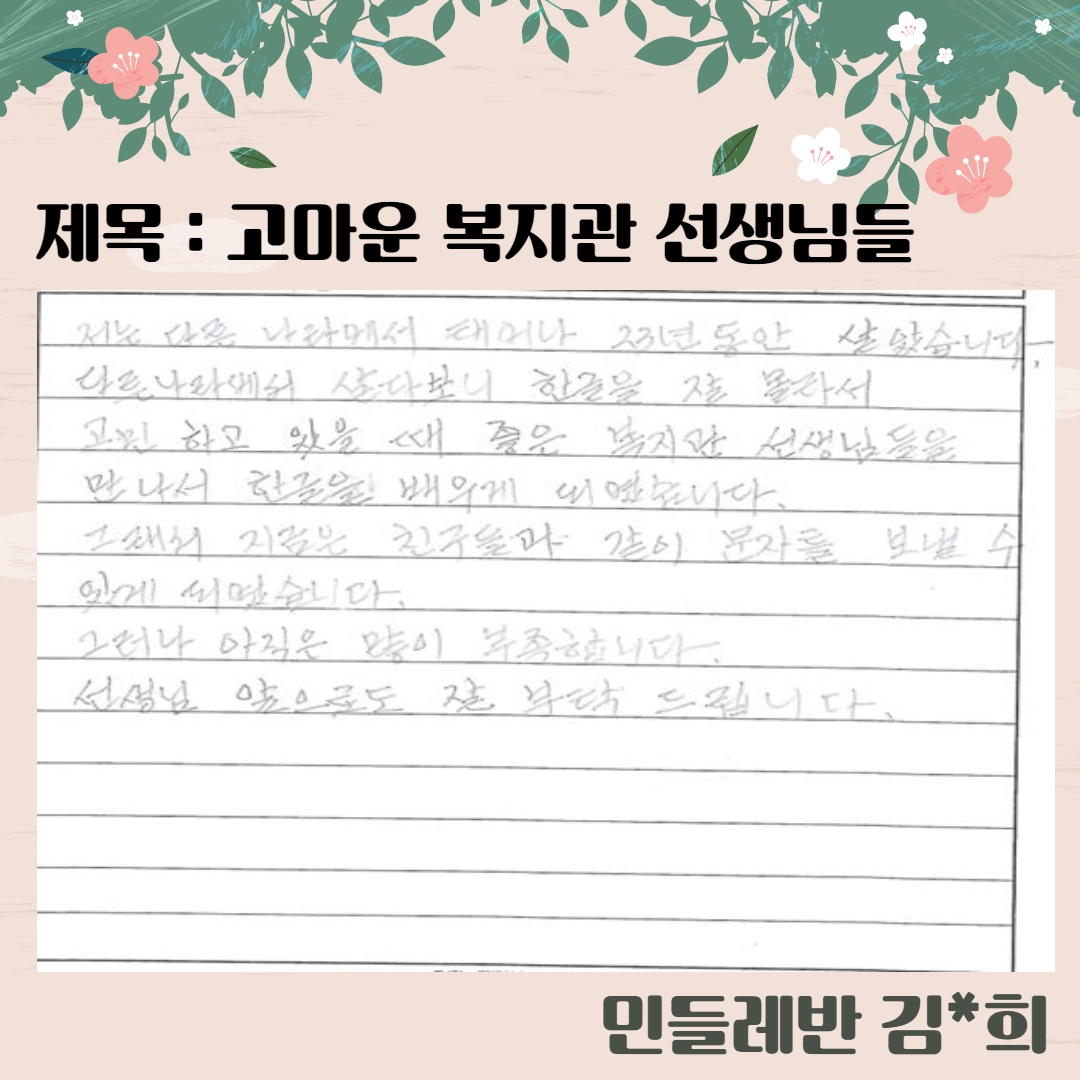 제목 : 고마운 복지관 선생님들
저는 다른 나라에서 태어나 23년 동안 살았습니다.
다른나라에서 살다보니 한글을 잘 몰라서
고민 하고 있을 때 좋은 복지관 선생님들을
만나서 한글을 배우게 되였습니다.
그래서 지금은 친구들과 같이 문자를 보낼 수
있게 되였습니다.
그러나 아직은 많이 부족합니다.
선생님 앞으로도 잘 부탁 드립니다.
민들레반 김*희